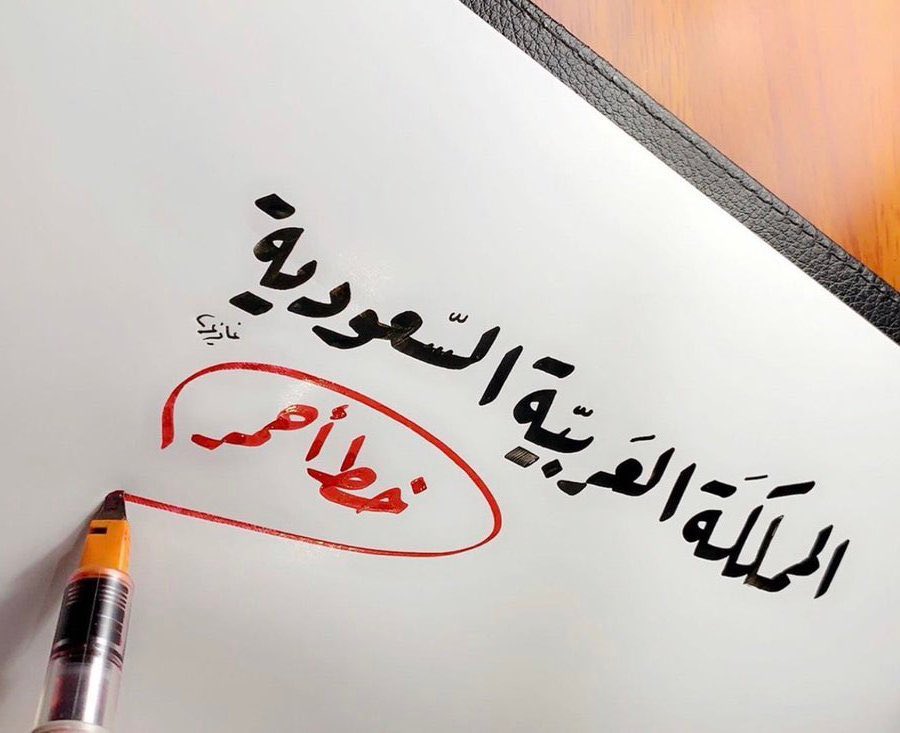 المملَكَة العَربيّة السّعودية
خط أحمر